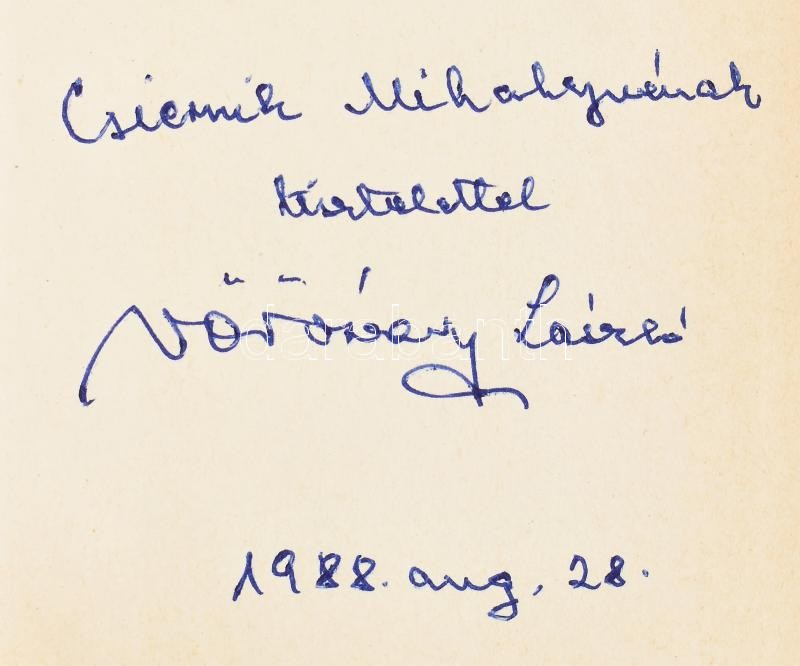 Csiernik Mihálynénak
tisztelettel
Vörösváry László
1988. aug. 28.
darabanth